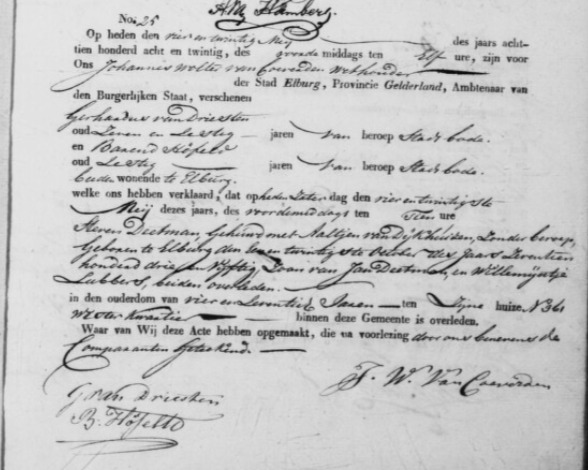 No. 25
Op heden den vier en twintig Meij des jaars acht-
tien honderd acht en twintig, des middags ten Elf ure, zijn voor
Ons Johannis Wolter van Coeverden Wethouder
der Stad Elburg, Provincie Gelderland, Ambtenaar van
den Burgerlijken Staat, verschenen
Gerhardus van Driesten
oud Zeven en Zestig jaren van beroep Stads bode.
en Barend Höfelt
oud Zestig jaren van beroep Stads bode.
beide wonende te Elburg.
welke ons hebben verklaard, dat op heden Zaterdag den vier en twintigste
Meij dezes jaars, des voordemiddags ten Tien ure
Steven Deetman Gehuwd met Aaltjen van Dijkhuizen, Zonder beroep,
Geboren te Elburg den en twintigste October des jaars Zeventien
honderd drie en vijftig, Zoon van Jan Deetman, en Willemijntje
Lubbers, beiden overleden.
in den ouderdom van vier en Zeventich Jaren ten Zijne huize N 361
Wester kwartier binnen deze Gemeente is overleden.
Waar van Wij deze Acte hebben opgemaakt, die na voorlezing door ons benevens de
Comparanten Geteekend.
J. W. Van Coeverden
G van Driesten
B. Höfelt